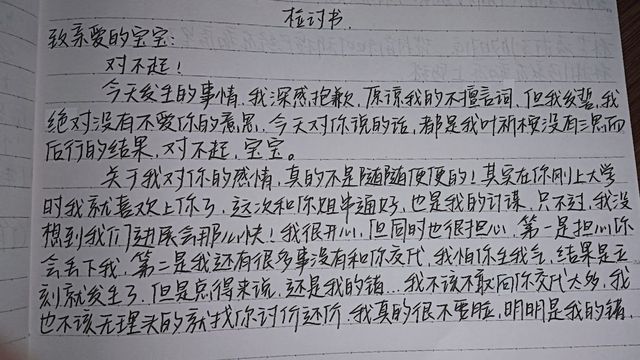 检讨书.
致亲爱的宝宝:
对不起!
今天发生的事情,我深感抱歉,原谅我的不擅言词,但我发誓,我
绝对没有不爱你的意思,今天对你说的话,都是我叶祈没有三思而
后行的结果,对不起,宝宝。
关于我对你的感情,真的不是随随便便的!其实在你刚上大学
时我就喜欢上你了,这次和你姐串通好,也是我的计谋,只不过,我没
想到我们进展会那么快!我很开心,但同时也很担心,第一是担心你
会丢下我,第二是我还有很多事没有和你交代,我怕你生我气,结果是立
刻就发生了,但是总得来说,还是我的错...我不该不敢向你交代太多,我
也不该无理头的就找你讨价还价,我真的很不要脸,明明是我的错,